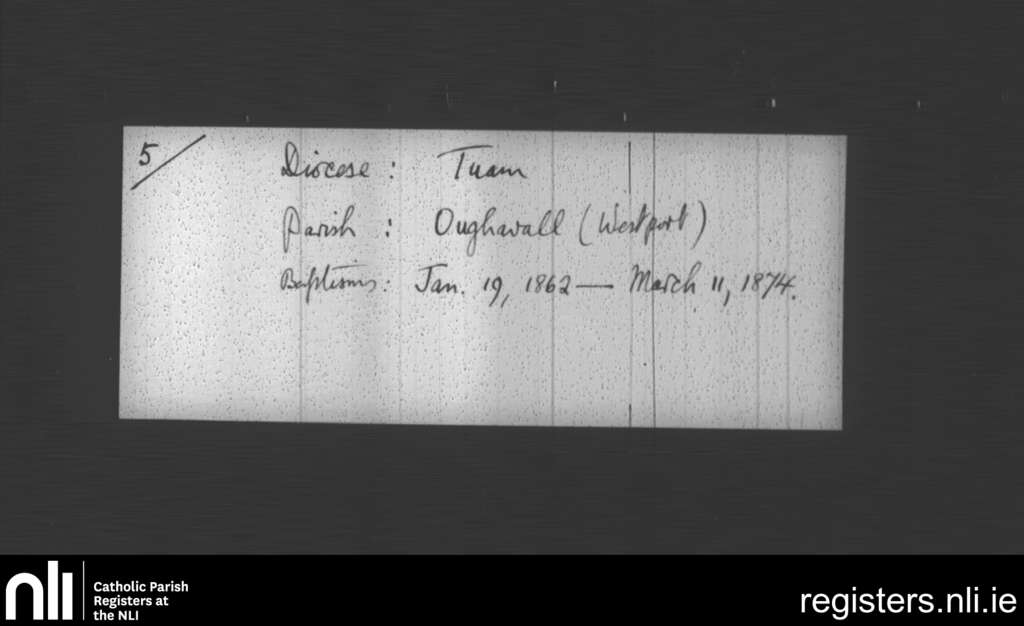 5/
Diocese : Tuam
Parish : Oughavall (Westport)
Baptisms : Jan. 19, 1862 — March 11, 1874.
nli
Catholic Parish
Registers at
the NLI
registers.nli.ie